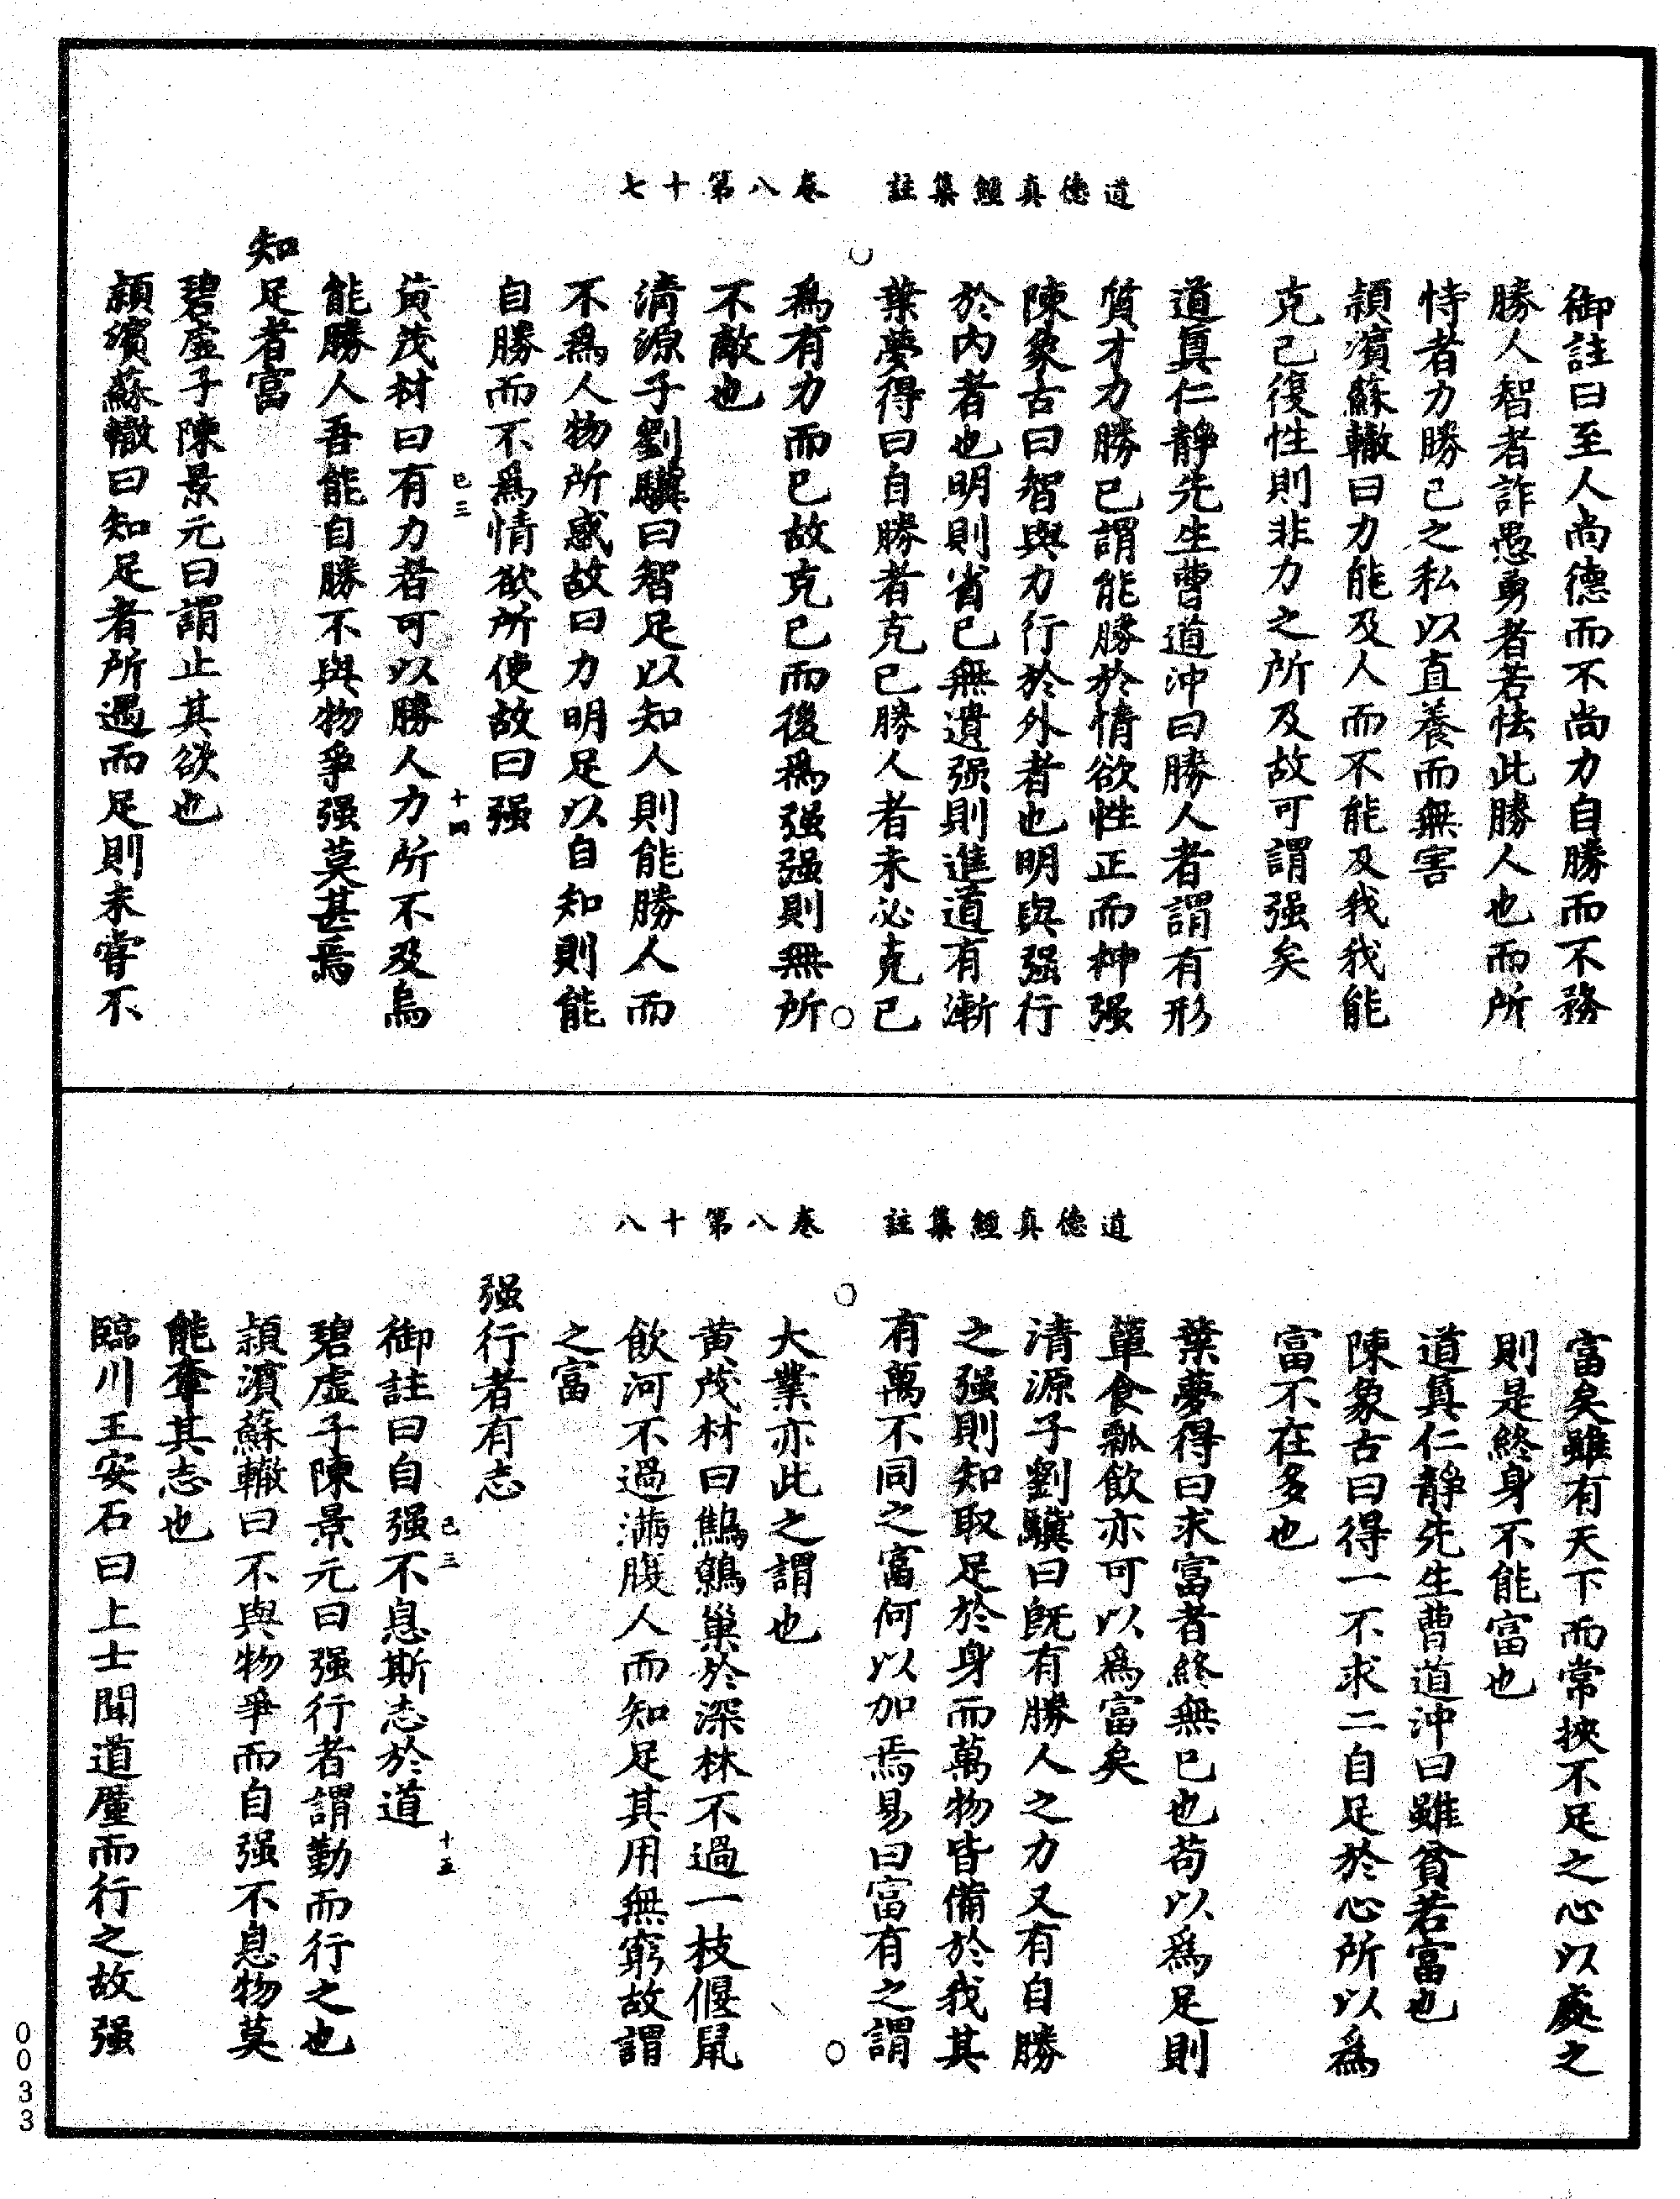 道德真經集註　卷八第十七
御註曰至人尚德而不尚力自勝而不務
勝人智者詐愚勇者若怯此勝人也而所
恃者力勝己之私以直養而無害
頴濱蘇轍曰力能及人而不能及我我能
克己復性則非力之所及故可謂强矣
道真仁靜先生曹道沖曰勝人者謂有形
質才力勝己謂能勝於情欲性正而神强
陳象古曰智與力行於外者也明與强行
於内者也明則省已無遺强則進道有漸
葉夢得曰自勝者克己勝人者未必克己
爲有力而已故克己而後爲强强則無所
不敵也
清源子劉驥曰智足以知人則能勝人而
不爲人物所惑故曰力明足以自知則能
自勝而不爲情欲所使故曰强
己三
十四
黄茂材曰有力者可以勝人力所不及焉
能勝人吾能自勝不與物爭强莫甚焉
知足者富
碧虚子陳景元曰謂止其欲也
頴濱蘇轍曰知足者所遇而足則未嘗不
道德真經集註　卷八第十八
富矣雖有天下而常挾不足之心以處之
則是終身不能富也
道真仁靜先生曹道沖曰雖貧若富也
陳象古曰得一不求二自足於心所以爲
富不在多也
葉夢得曰求富者終無已也苟以爲足則
簞食瓢飲亦可以爲富矣
清源子劉驥曰旣有勝人之力又有自勝
之强則知取足於身而萬物皆備於我其
有萬不同之富何以加焉易曰富有之謂
大業亦此之謂也
黄茂材曰鷦鷯巢於深林不過一枝偃鼠
飲河不過滿腹人而知足其用無窮故謂
之富
强行者有志
己三
十五
御註曰自强不息斯志於道
碧虚子陳景元曰强行者謂勤而行之也
頴濱蘇轍曰不與物爭而自强不息物莫
能奪其志也
臨川王安石曰上士聞道廑而行之故强
0033